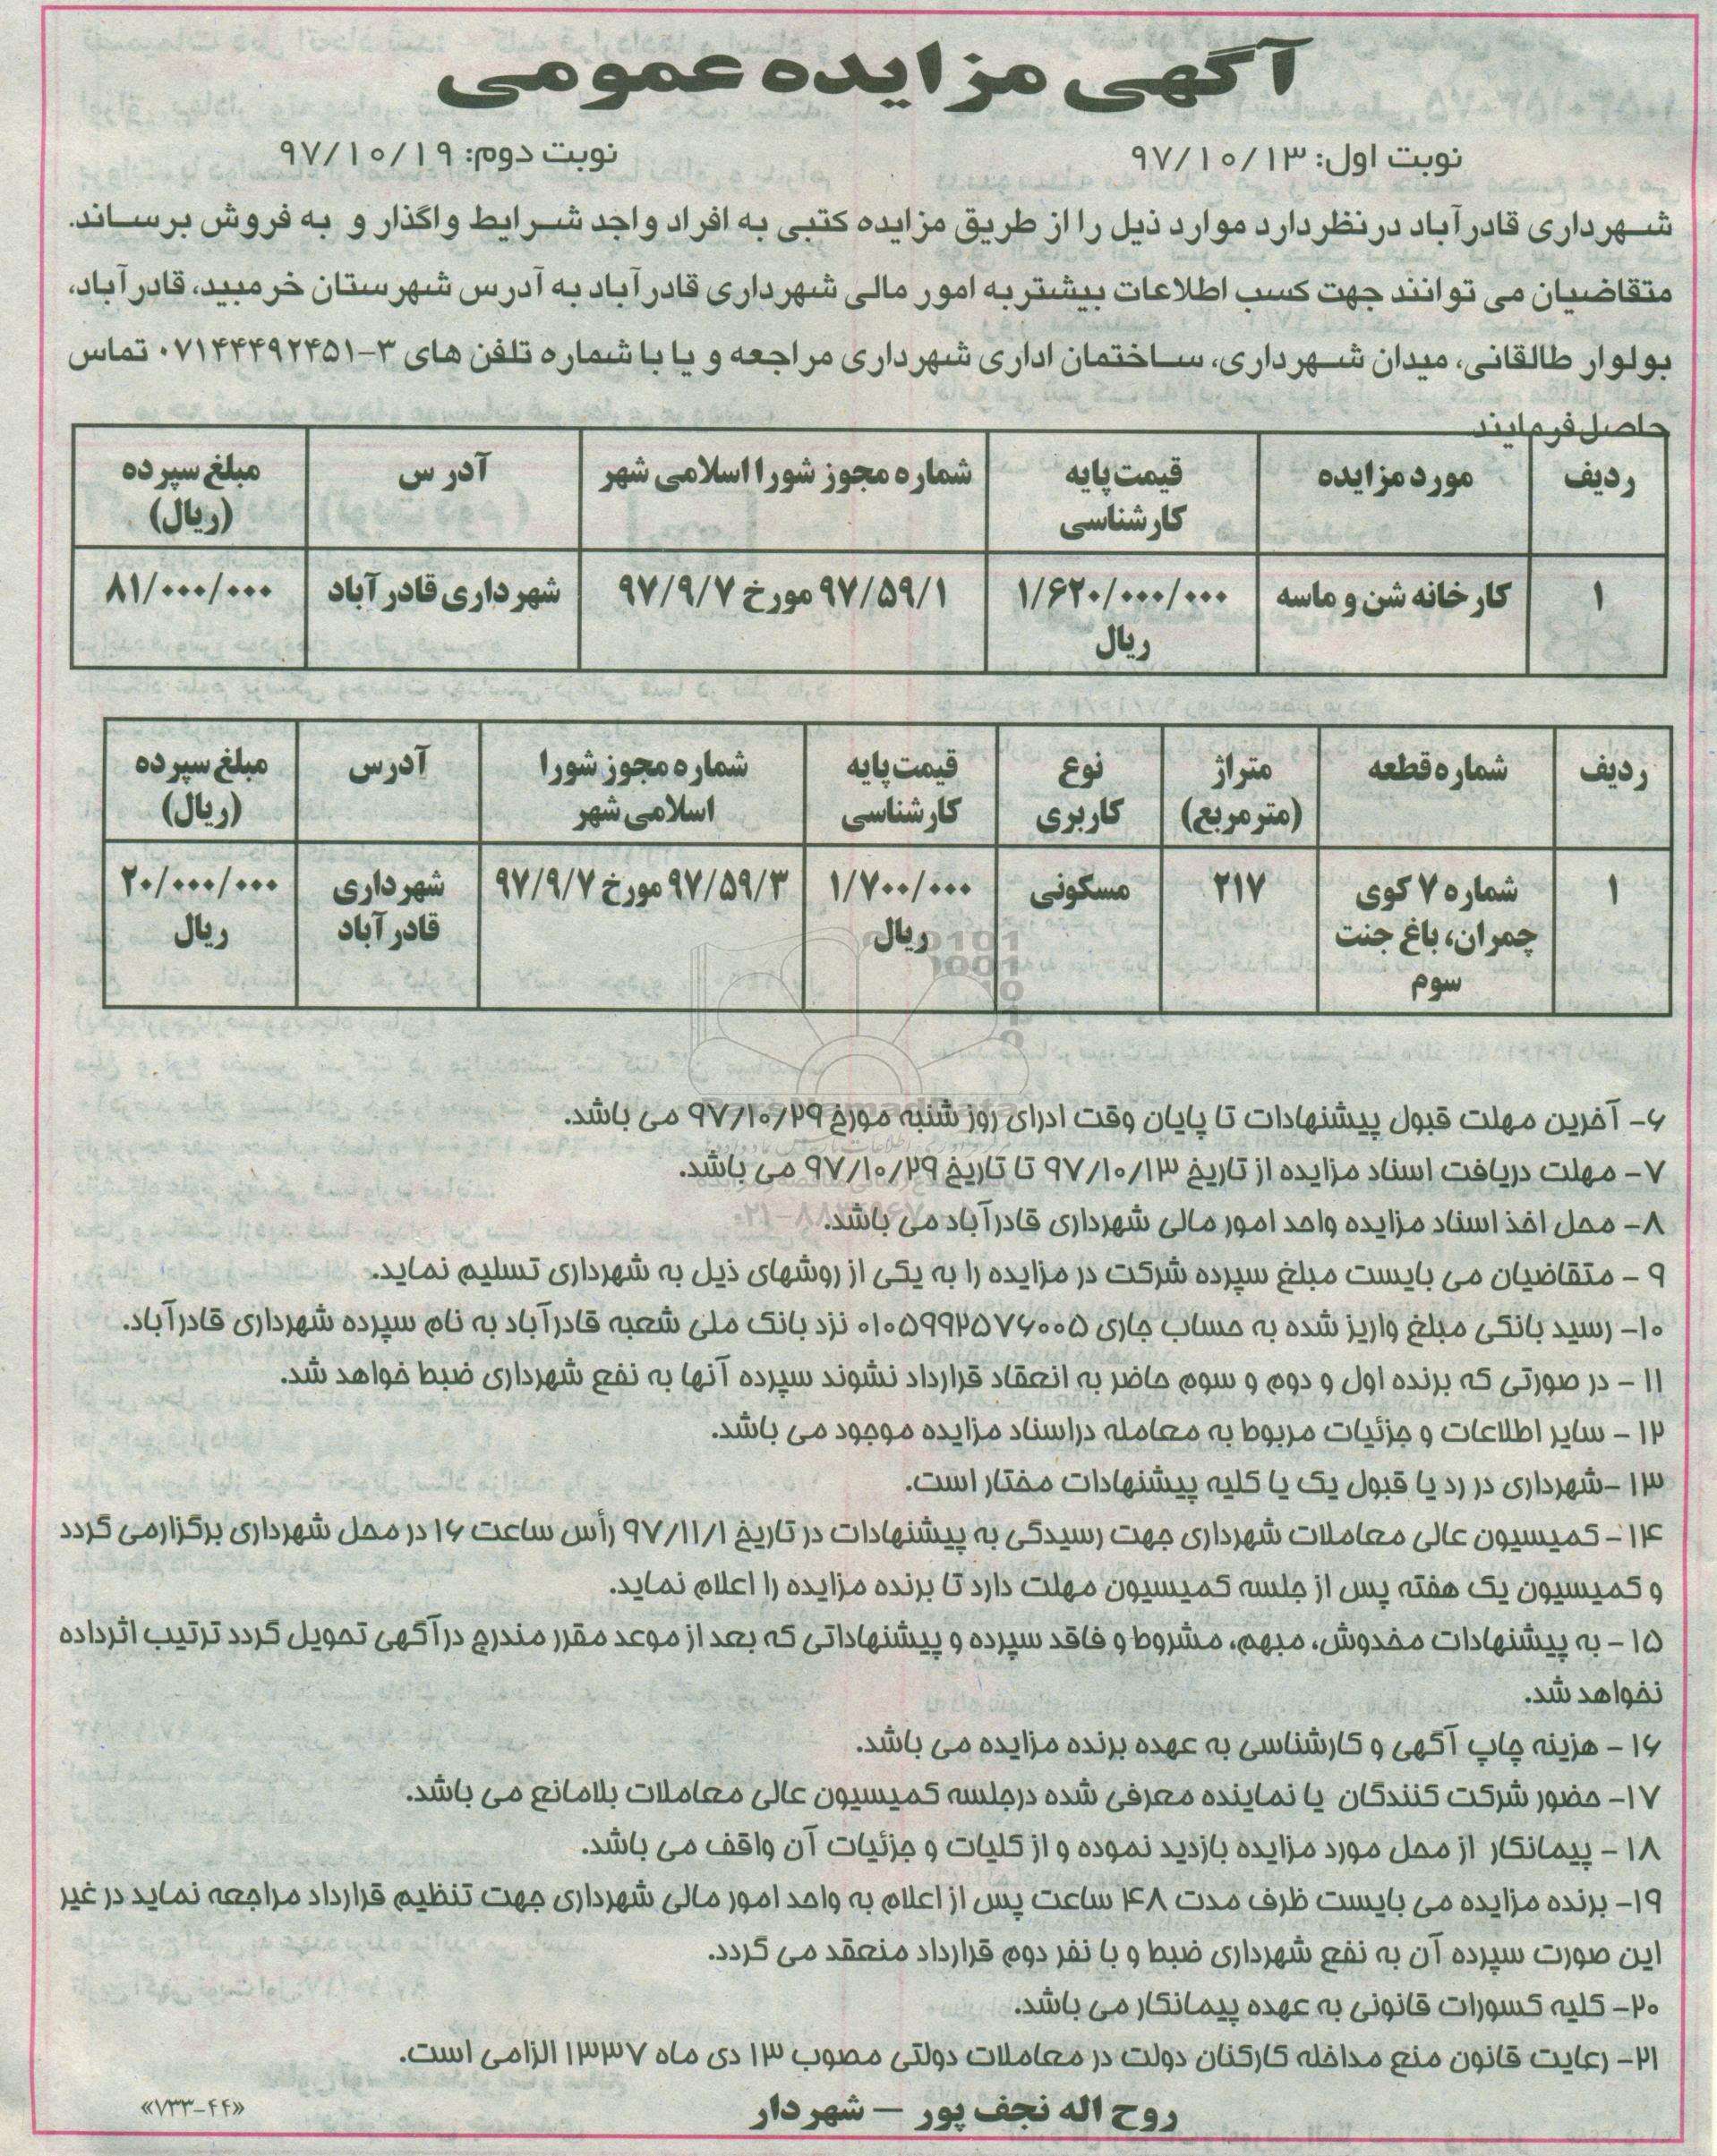 آگهی مزایده عمومی
نوبت اول: ۹۷/۱۰/۱۳
نوبت دوم: ۹۷/۱۰/۱۹
شهرداری قادرآباد در نظر دارد موارد ذیل را از طریق مزایده کتبی به افراد واجد شرایط واگذار و به فروش برساند.
متقاضیان می توانند جهت کسب اطلاعات بیشتر به امور مالی شهرداری قادرآباد به آدرس شهرستان خرمبید، قادرآباد،
بولوار طالقانی، میدان شهرداری، ساختمان اداری شهرداری مراجعه و یا با شماره تلفن های ۳-۰۷۱۴۴۴۹۲۴۵۱ تماس
حاصل فرمایند
ردیف | مورد مزایده | قیمت پایه کارشناسی | شماره مجوز شورا اسلامی شهر | آدرس | مبلغ سپرده (ریال)
۱ | کارخانه شن و ماسه | ۱/۶۲۰/۰۰۰/۰۰۰ ریال | ۹۷/۵۹/۱ مورخ ۹۷/۹/۷ | شهرداری قادر آباد | ۸۱/۰۰۰/۰۰۰
ردیف | شماره قطعه | متراژ (مترمربع) | نوع کاربری | قیمت پایه کارشناسی | شماره مجوز شورا اسلامی شهر | آدرس | مبلغ سپرده (ریال)
۱ | شماره ۷ کوی چمران، باغ جنت سوم | ۲۱۷ | مسکونی | ۱/۷۰۰/۰۰۰ ریال | ۹۷/۵۹/۳ مورخ ۹۷/۹/۷ | شهرداری قادر آباد | ۲۰/۰۰۰/۰۰۰ ریال
۶- آخرین مهلت قبول پیشنهادات تا پایان وقت ادرای روز شنبه مورخ ۹۷/۱۰/۲۹ می باشد.
۷- مهلت دریافت اسناد مزایده از تاریخ ۹۷/۱۰/۱۳ تا تاریخ ۹۷/۱۰/۲۹ می باشد.
۸- محل اخذ اسناد مزایده واحد امور مالی شهرداری قادرآباد می باشد.
۹ - متقاضیان می بایست مبلغ سپرده شرکت در مزایده را به یکی از روشهای ذیل به شهرداری تسلیم نماید.
۱۰- رسید بانکی مبلغ واریز شده به حساب جاری ۰۱۰۵۹۹۲۵۷۶۰۰۵ نزد بانک ملی شعبه قادرآباد به نام سپرده شهرداری قادرآباد.
۱۱ - در صورتی که برنده اول و دوم و سوم حاضر به انعقاد قرارداد نشوند سپرده آنها به نفع شهرداری ضبط خواهد شد.
۱۲ - سایر اطلاعات و جزئیات مربوط به معامله دراسناد مزایده موجود می باشد.
۱۳ -شهرداری در رد یا قبول یک یا کلیه پیشنهادات مختار است.
۱۴ - کمیسیون عالی معاملات شهرداری جهت رسیدگی به پیشنهادات در تاریخ ۹۷/۱۱/۱ رأس ساعت ۱۶ در محل شهرداری برگزارمی گردد
و کمیسیون یک هفته پس از جلسه کمیسیون مهلت دارد تا برنده مزایده را اعلام نماید.
۱۵ - به پیشنهادات مخدوش، مبهم، مشروط و فاقد سپرده و پیشنهاداتی که بعد از موعد مقرر مندرج درآگهی تحویل گردد ترتیب اثرداده
نخواهد شد.
۱۶ - هزینه چاپ آگهی و کارشناسی به عهده برنده مزایده می باشد.
۱۷- حضور شرکت کنندگان یا نماینده معرفی شده درجلسه کمیسیون عالی معاملات بلامانع می باشد.
۱۸ - پیمانکار از محل مورد مزایده بازدید نموده و از کلیات و جزئیات آن واقف می باشد.
۱۹- برنده مزایده می بایست ظرف مدت ۴۸ ساعت پس از اعلام به واحد امور مالی شهرداری جهت تنظیم قرارداد مراجعه نماید در غیر
این صورت سپرده آن به نفع شهرداری ضبط و با نفر دوم قرارداد منعقد می گردد.
۲۰- کلیه کسورات قانونی به عهده پیمانکار می باشد.
۲۱- رعایت قانون منع مداخله کارکنان دولت در معاملات دولتی مصوب ۱۳ دی ماه ۱۳۳۷ الزامی است.
روح اله نجف پور - شهردار
«۷۳۳-۴۴»